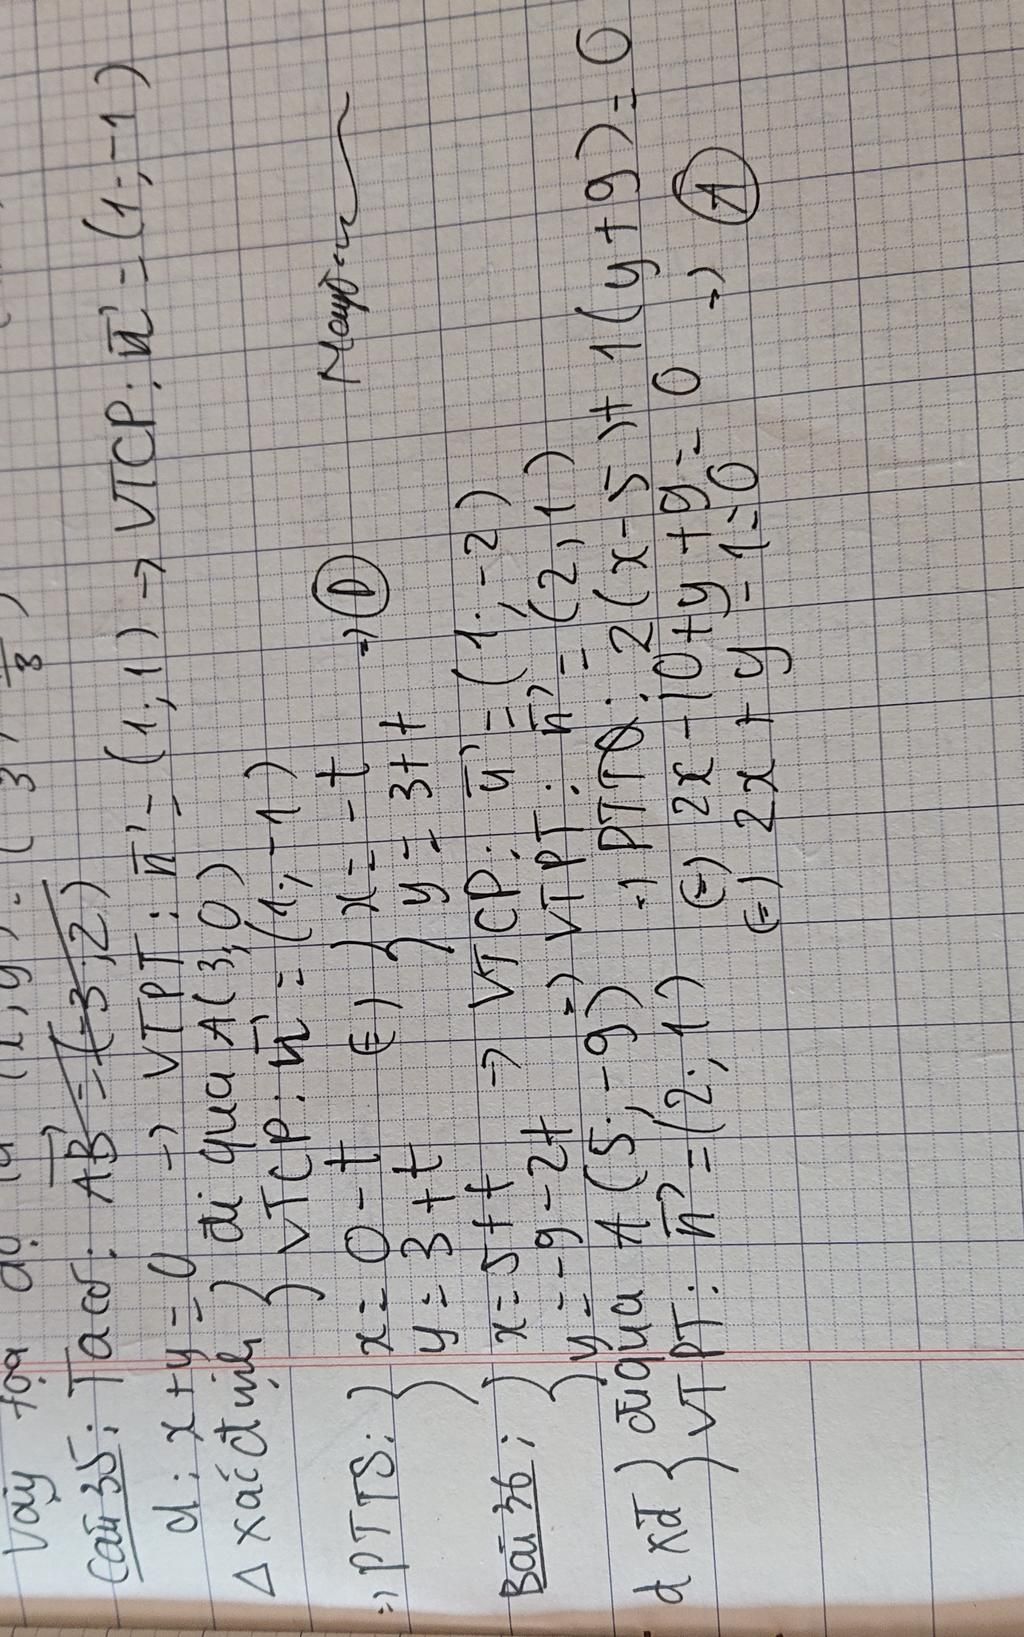 Vậy tọa độ là (x, y) = ( 3,
Câu 35: Ta có: AB = (-3; 2)
d: x + y = 0 -> VTPT: n = (1; 1) -> VTCP: u = (1; -1)
Δ xác định { đi qua A(3,0)
VTCP: u = (1; -1)
=> PTTS: { x = 0 - t (=) { x = -t => D
y = 3 + t y = 3 + t
Bài 36: { x = 5 + t -> VTCP: u = (1; -2)
y = -9 - 2t => VTPT: n = (2, 1)
d xđ { đi qua A (5; -9) => PTTQ: 2(x - 5) + 1(y + 9) = 0
VTPT: n = (2; 1) (=) 2x - 10 + y + 9 = 0 => A
(=) 2x + y - 1 = 0